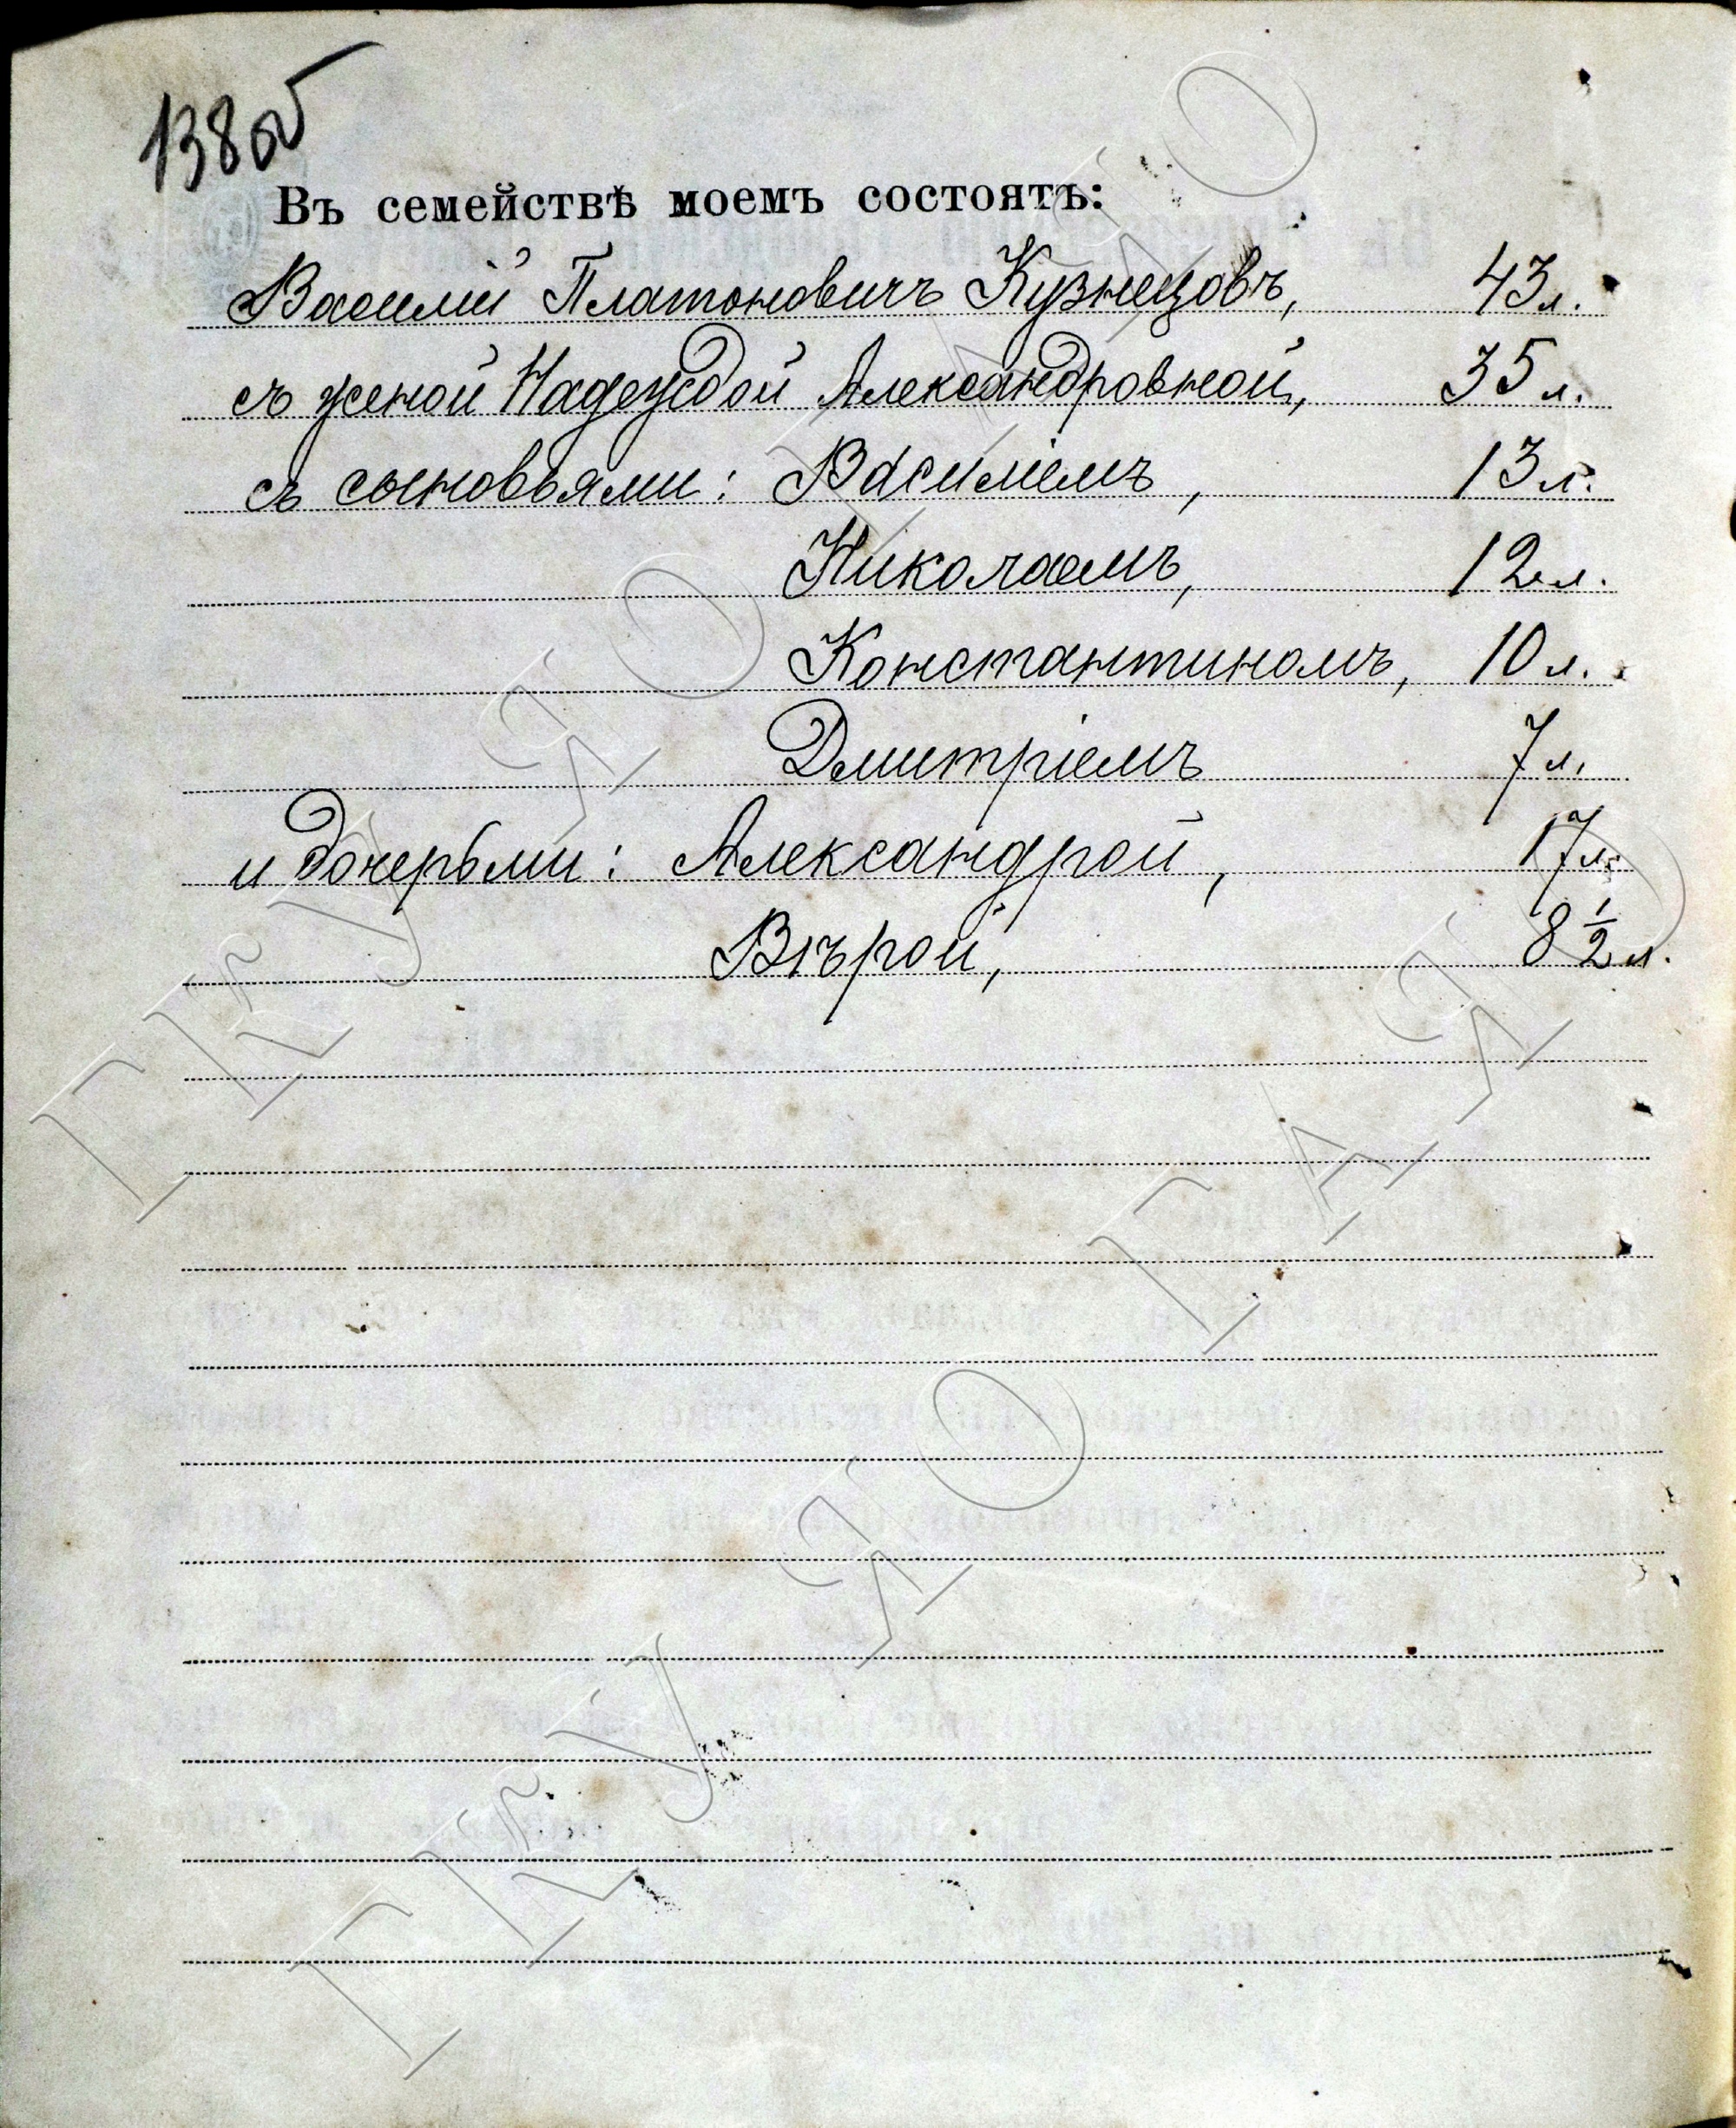 138об
Въ семействѣ моемъ состоятъ:
Василій Платоновичъ Кузнецовъ, 43 л.
съ женой Надеждой Александровной, 35 л.
съ сыновьями: Василіемъ, 13 л.
Николаемъ, 12 л.
Константиномъ, 10 л.
Дмитріемъ 7 л.
и дочерьми: Александрой, 17 л.
Вѣрой, 8 1/2 л.
ГКУ ЯО ГАЯО
ГКУ ЯО ГАЯО